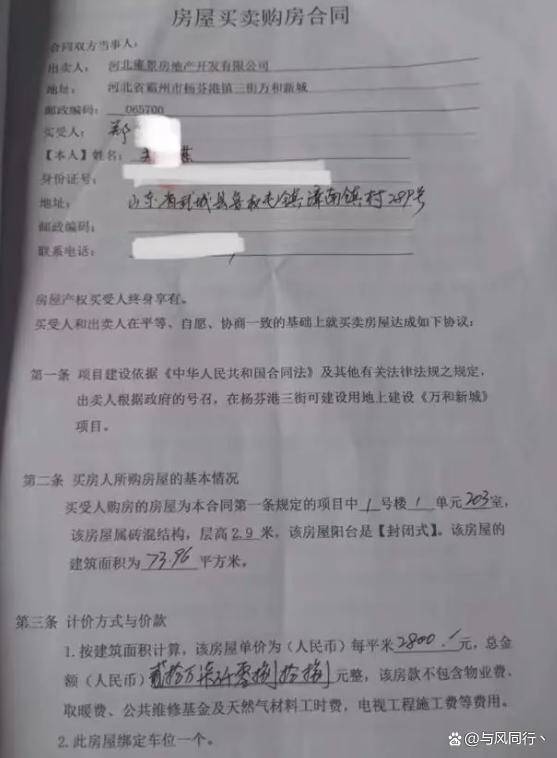 房屋买卖购房合同
合同双方当事人：
出卖人： 河北雍景房地产开发有限公司
地址： 河北省霸州市杨芬港镇三街万和新城
邮政编码： 065700
买受人： 郑
【本人】姓名：
身份证号：
地址： 山东省武城县鲁权屯镇滦南镇村289号
邮政编码：
联系电话：
房屋产权买受人终身享有。
买受人和出卖人在平等、自愿、协商一致的基础上就买卖房屋达成如下协议：
第一条 项目建设依据《中华人民共和国合同法》及其他有关法律法规之规定，
出卖人根据政府的号召，在杨芬港三街可建设用地上建设《万和新城》
项目。
第二条 买房人所购房屋的基本情况
买受人购房的房屋为本合同第一条规定的项目中 1 号楼 1 单元 203 室，
该房屋属砖混结构，层高 2.9 米，该房屋阳台是【封闭式】。该房屋的
建筑面积为 73.96 平方米。
第三条 计价方式与价款
1.按建筑面积计算，该房屋单价为（人民币）每平米 2800 元，总金
额（人民币） 贰拾万 零捌拾捌 元整，该房款不包含物业费、
取暖费、公共维修基金及天然气材料工时费，电视工程施工费等费用。
2.此房屋绑定车位一个。
@与风同行丶